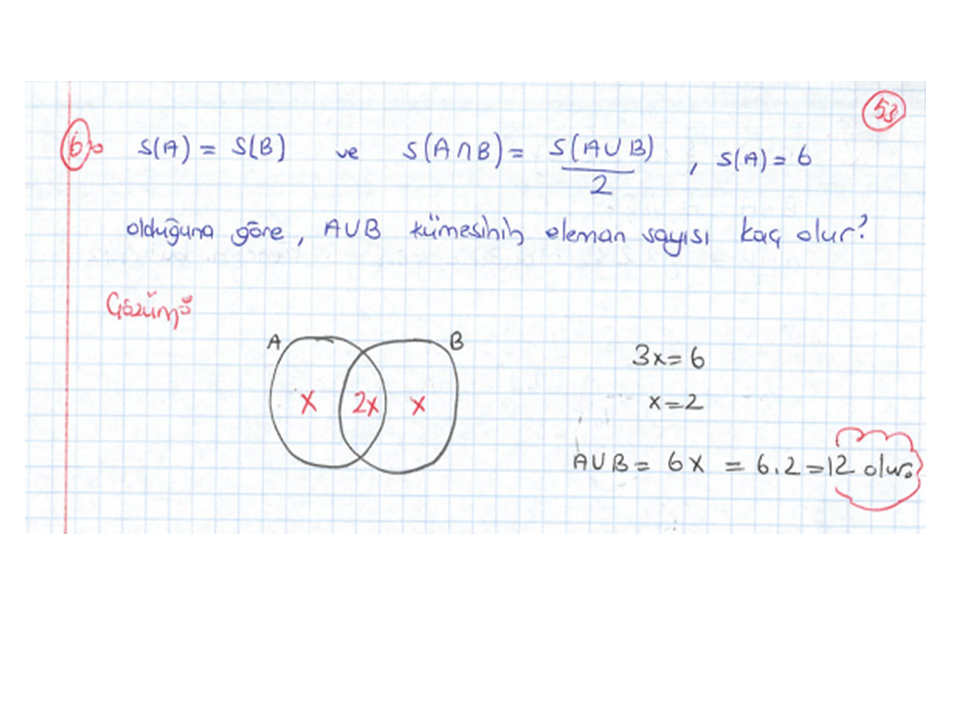 53
6) S(A) = S(B) ve S(A∩B) = S(A∪B)/2 , S(A) = 6
olduğuna göre, A∪B kümesinin eleman sayısı kaç olur?
Çözüm:
A B
x 2x x
3x = 6
x = 2
A∪B = 6x = 6.2 = 12 olur.